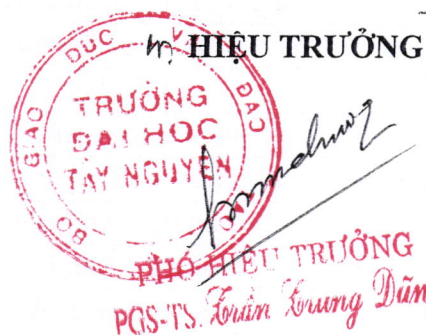 HIỆU TRƯỞNG
BỘ GIÁO DỤC VÀ ĐÀO
TRƯỜNG
ĐẠI HỌC
TÂY NGUYÊN
PHÓ HIỆU TRƯỞNG
PGS-TS. Trần Trung Dũn